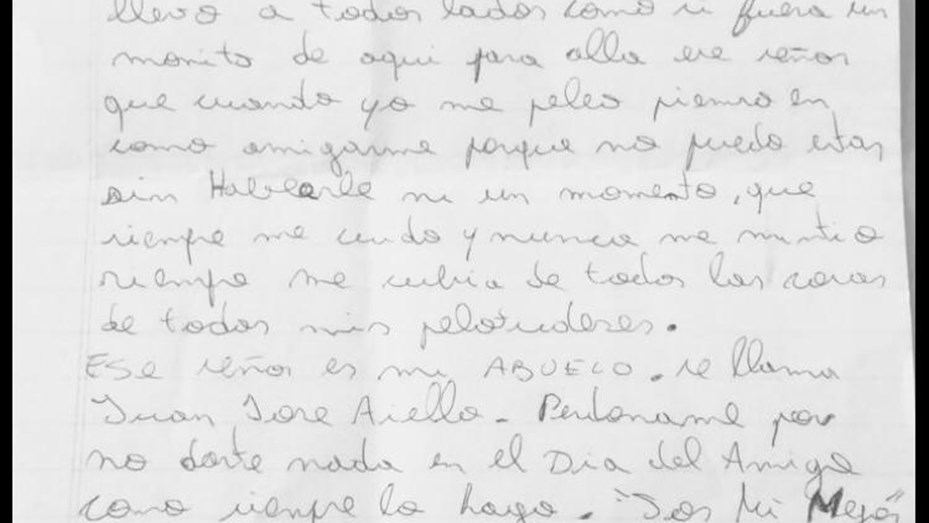 llevo a todos lados como si fuera un
monito de aqui para alla ese señor
que cuando yo me peleo pienso en
como amigarme porque no puedo estar
sin Hablarle ni un momento, que
siempre me cuido y nunca me mintio
siempre me cubia de todas las cosas
de todas mis pelotudeses.
ESe señor es mi ABUELO. se llama
Juan Jose Aiello. Perdoname por
no darte nada en el Dia del Amigo
como siempre lo hago. "Sos Mi Mejor